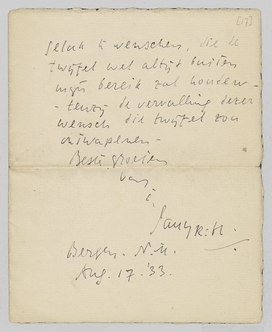 [17]
geluk te wenschen, die de
twijfel wel altijd buiten
mijn bereik zal houden –
– tenzij de vervulling dezer
wensch die twijfel zou
ontwapenen –
Beste groeten
van
Bergen. N.H.
Aug. 17. '33.